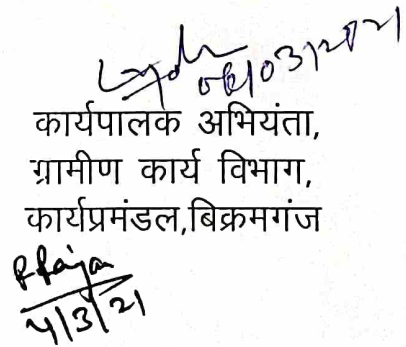 04/03/2021
कार्यपालक अभियंता,
ग्रामीण कार्य विभाग,
कार्यप्रमंडल,बिक्रमगंज
4/3/21